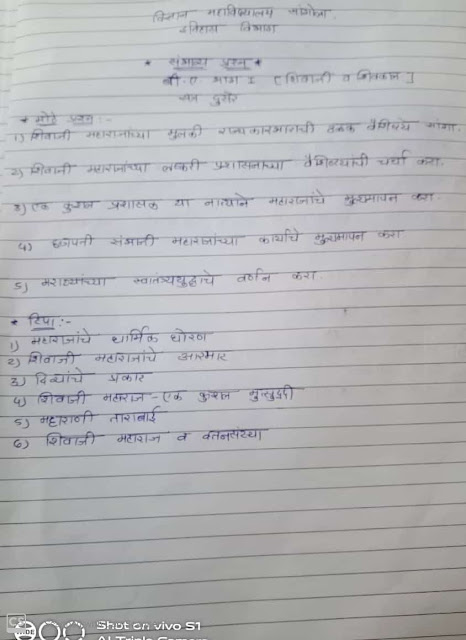 विज्ञान महाविद्यालय सांगोला.
इतिहास विभाग
* संभाव्य प्रश्न *
बी.ए भाग I [शिवाजी व शिवकाल]
सत्र दुसरे
* मोठे प्रश्न :-
1) शिवाजी महाराजांच्या मुलकी राज्यकारभाराची ठळक वैशिष्ट्ये सांगा.
2) शिवाजी महाराजांच्या लष्करी प्रशासनाच्या वैशिष्ट्यांची चर्चा करा.
3) एक कुशल प्रशासक या नात्याने महाराजांचे मुल्यमापन करा.
4) छत्रपती संभाजी महाराजांच्या कार्याचे मुल्यमापन करा
5) मराठ्यांच्या स्वातंत्र्ययुद्धाचे वर्णन करा.
* टिपा :-
1) महाराजांचे धार्मिक धोरण
2) शिवाजी महाराजांचे आरमार
3) किल्यांचे प्रकार
4) शिवाजी महाराज - एक कुशल मुत्सुद्दी
5) महाराणी ताराबाई
6) शिवाजी महाराज व वतनसंस्था
CS
Shot on vivo S1
AI Triple Camera